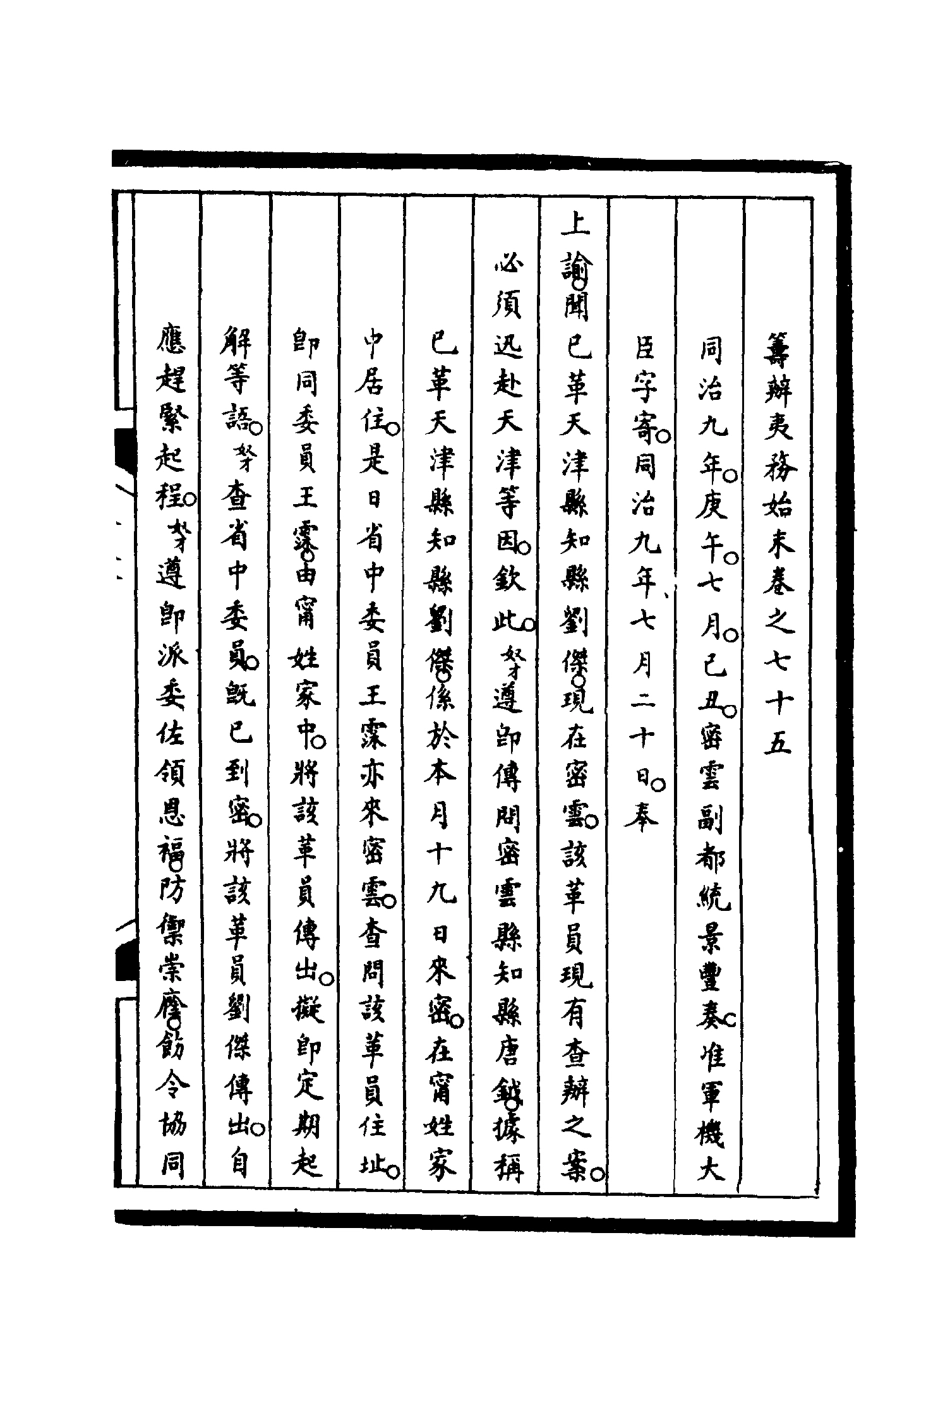 籌辦夷務始末卷之七十五
同治九年。庚午。七月。己丑。密雲副都統景豐奏。准軍機大
臣字寄。同治九年、七月二十日。奉
上諭。聞已革天津縣知縣劉傑。現在密雲。該革員現有查辦之案。
必須迅赴天津等因。欽此。奴才遵即傳問密雲縣知縣唐。據稱
已革天津縣知縣劉傑。係於本月十九日來密。在甯姓家
中居住。是日省中委員王霂亦來密雲。查問該革員住址。
卽同委員王霂。由甯姓家中。將該革員傳出。擬卽定期起
解等語。奴才查省中委員。旣已到密。將該革員劉傑傳出。自
應趕緊起程。奴才遵卽派委佐領恩福。防禦崇。飭令協同